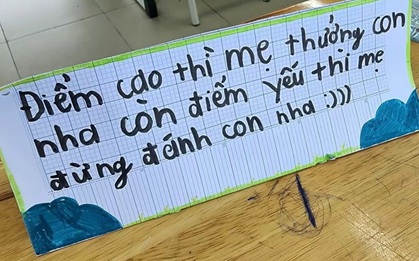 Điểm cao thì mẹ thưởng con
nha còn điểm yếu thì mẹ
đừng đánh con nha :)))